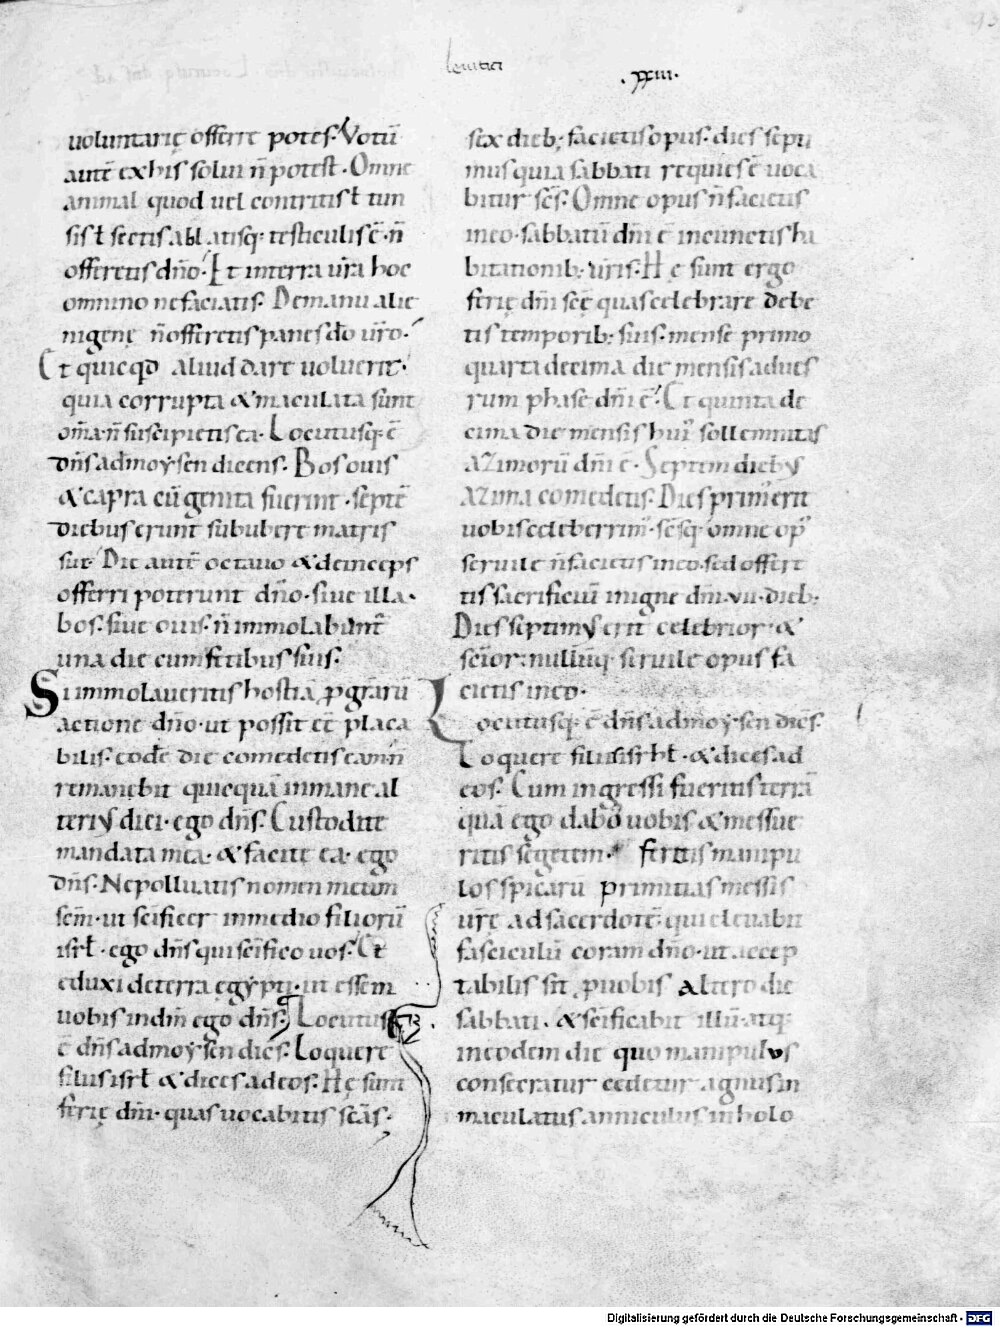 leuitici
.xxiii.
93
uoluntarię offerre potest. Votū
autē ex his solui n̄ potest. Omne
animal quod uel contritis ł tun
sis ł sectis ablatisq; testiculis ē. n̄
offeretis dn̄o. Et in terra ur̄a hoc
omnino ne faciatis. De manu alie
nigenę n̄ offeretis panes do ur̄o.
Et quicqd aliud dare uoluerit.
quia corrupta & maculata sunt
om̄a. n̄ suscipietis ea. Locutusq; ē
dn̄s ad moysen dicens. Bos ouis
& capra cū genita fuerint. septē
diebus erunt sub ubere matris
suę. Die autē octauo & deinceps
offerri poterunt dn̄o. siue illa
bos. siue ouis. n̄ immolabunt̄
una die cum fetibus suis.
Si immolaueritis hostiā p grārū
actione dn̄o. ut possit eē placa
bilis. eodē die comedetis eam. n̄
remanebit quicquā in mane al
terius diei. ego dn̄s. Custodite
mandata mea. & facite ea. ego
dn̄s. Ne polluatis nomen meum
sc̄m. ut sc̄ificer in medio filiorū
isrł. ego dn̄s qui sc̄ifico uos. Et
eduxi de terra egypti. ut essem
uobis in dm̄ ego dn̄s. Locutus
ē dn̄s ad moysen dic̄s. Loquere
filiis isrł & dices ad eos. Hę sunt
ferię dn̄i. quas uocabitis sc̄as.
sex dieb; facietis opus. dies septi
mus quia sabbati requies ē uoca
bitur sc̄s. Omne opus n̄ facietis
in eo. sabbatū dn̄i ē in cunctis ha
bitationib; ur̄is. Hę sunt ergo
ferię dn̄i sc̄ę quas celebrare debe
tis temporib; suis. mense primo
quarta decima die mensis ad ues
rum phase dn̄i ē. Et quinta de
cima die mensis hui' sollemnitas
azimorū dn̄i ē. Septem diebus
azima comedetis. Dies prim' erit
uobis celeberrim'. sc̄sq; omne op'
seruile n̄ facietis in eo. sed offere
tis sacrificiū in igne dn̄i. vii. dieb;
Dies septimus erit celebrior. &
sc̄ior. nullūq; seruile opus fa
cietis in eo.
Locutusq; ē dn̄s ad moysen dic̄s.
Loquere filiis isrł. & dices ad
eos. Cum ingressi fueritis terrā
quā ego dabo uobis & messue
ritis segetem. feretis manipu
los spicarū primitias messis
ur̄ę ad sacerdotē. qui eleuabit
fasciculū coram dn̄o. ut accep
tabilis sit p uobis altero die
sabbati. & sc̄ificabit illū. atq;
in eodem die quo manipulus
consecratur cedetur agnus in
maculatus anniculus in holo
Digitalisierung gefördert durch die Deutsche Forschungsgemeinschaft - DFG